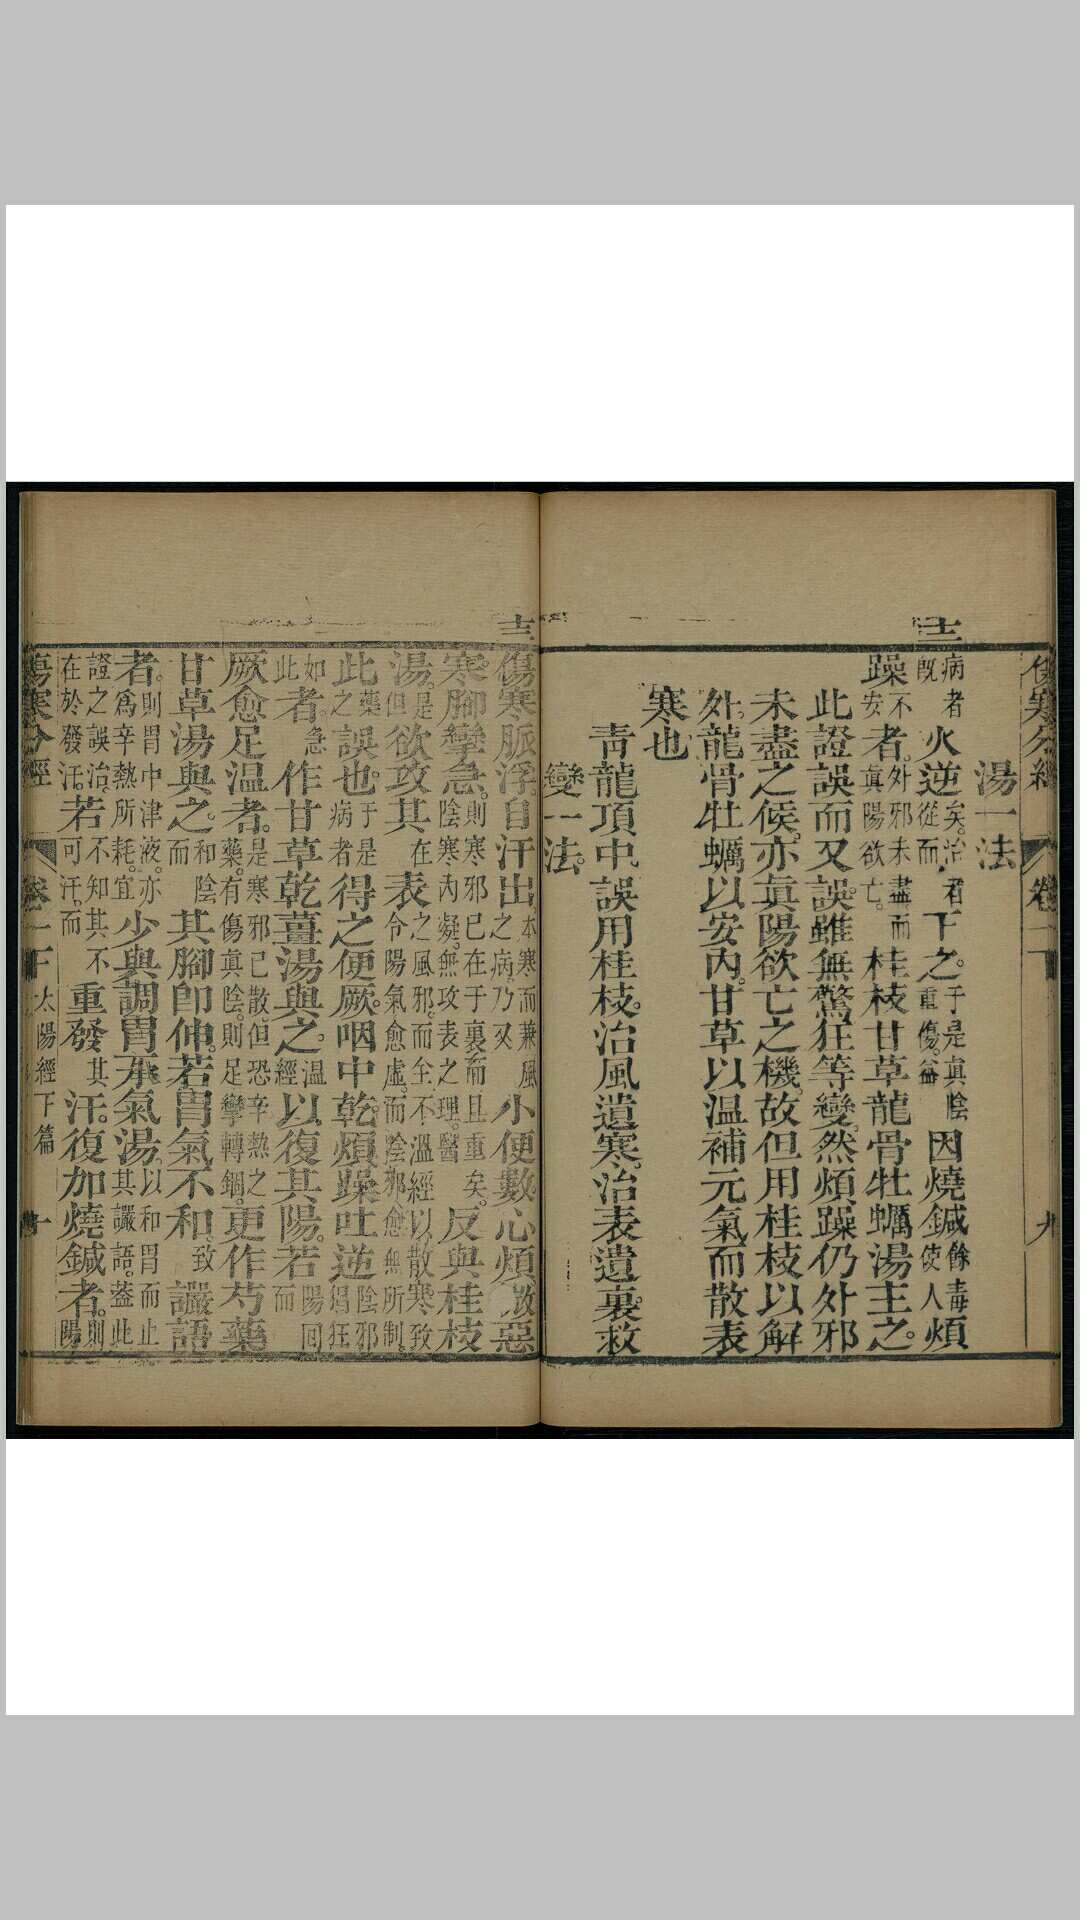 傷寒分經 卷一下 九
十三
湯一法
病者既火逆矣。治者從而下之。于是真陰重傷。益因燒鍼餘毒使人煩
躁不安者。外邪未盡而真陽欲亡。桂枝甘草龍骨牡蠣湯主之。
此證誤而又誤。雖無驚狂等變。然煩躁仍外邪
未盡之候。亦真陽欲亡之機。故但用桂枝以解
外。龍骨牡蠣以安內。甘草以溫補元氣而散表
寒也
青龍項中誤用桂枝。治風遺寒。治表遺裏。救
變一法。
十三
傷寒脈浮。自汗出本寒而兼風之病。乃又小便數。心煩。微惡
寒。腳攣急。則寒邪已在于裏而且重矣。陰寒內凝。無攻表之理。醫反與桂枝
湯。是但欲攻其在表之風邪。而全不溫經以散寒。致令陽氣愈虛。而陰邪愈無所制。
此藥之誤也。于是病者得之便厥。咽中乾。煩躁吐逆陰邪猖狂
如此者。急作甘草乾薑湯與之。溫經以復其陽。若陽回而
厥愈足溫者。是寒邪已散。但恐辛熱之藥。有傷真陰。則足攣轉錮。更作芍藥
甘草湯與之。和陰而其腳即伸。若胃氣不和。致讝語
者。則胃中津液。亦為辛熱所耗。宜少與調胃承氣湯。以和胃而止其讝語。蓋此
證之誤治。不知其不在於發汗。若可汗。而重發其汗。復加燒鍼者。則陽
傷寒分經 卷一下 太陽經下篇